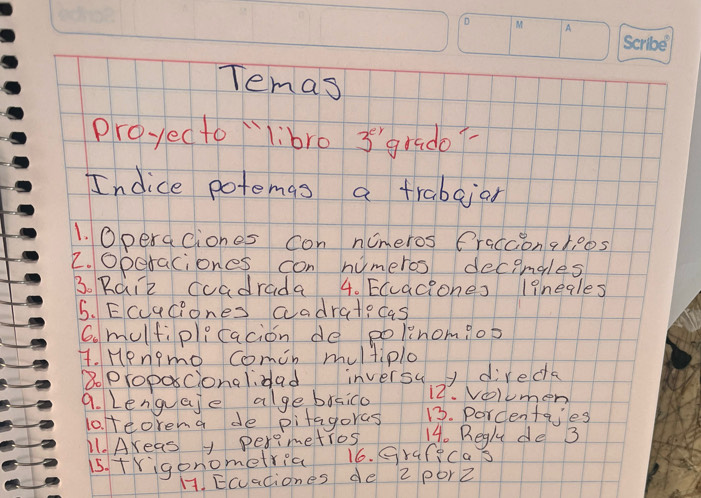 D M A
Scribe
Temas
Proyecto "libro 3er grado"
Indice potemas a trabajar
1. Operaciones con números fraccionarios
2. Operaciones con números decimales
3. Raiz cuadrada 4. Ecuaciones lineales
5. Ecuaciones cuadraticas
6. multiplicación de polinomios
7. Minimo común multiplo
8. Proporcionalidad inversa y directa
9. Lenguaje algebraico 12. Volumen
10. Teorema de pitagoras 13. Porcentajes
11. Areas y perimetros 14. Regla de 3
15. trigonometria 16. Graficas
17. Ecuaciones de 2 por 2